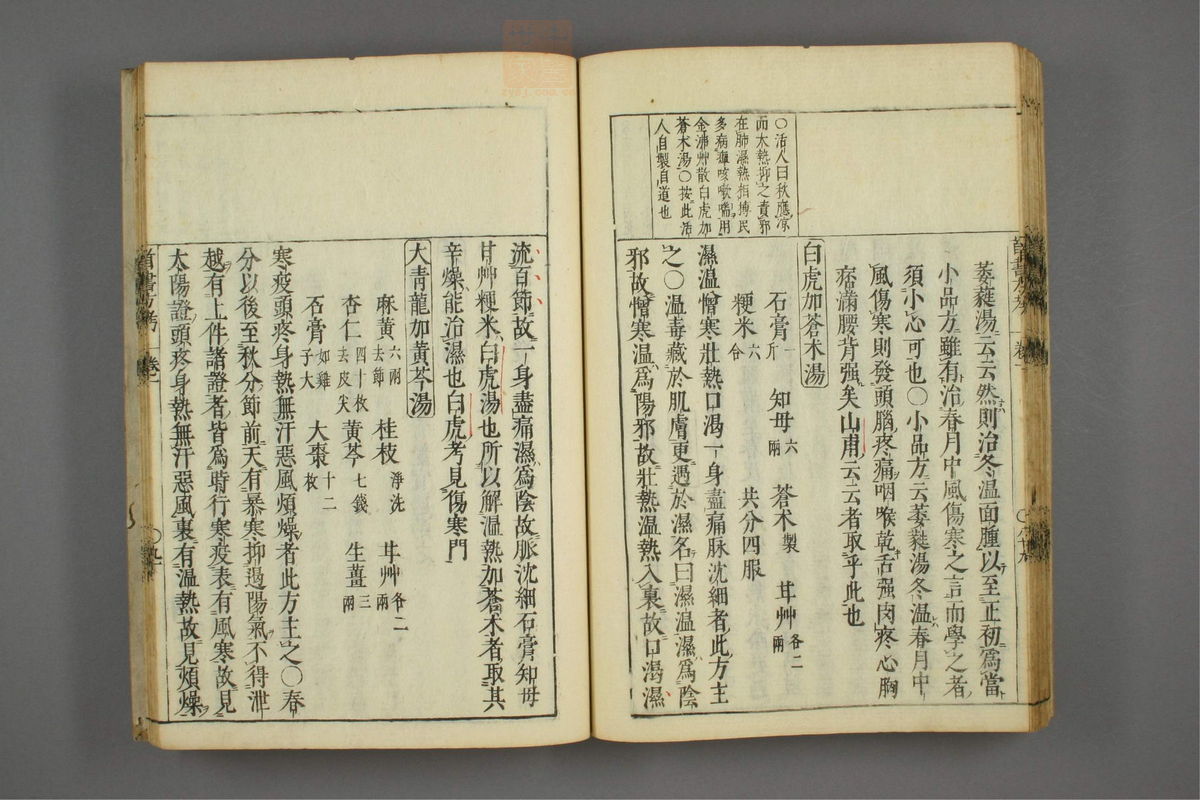 ○活人曰秋應凉
而大熱抑之責邪
在肺濕熱相搏民
多病癉咳嗽喘用
金沸艸散白虎加
蒼朮湯○按此活
人自製自道也
萎蕤湯云云然則治冬温面腫以至正初爲當
小品方雖有治春月中風傷寒之言而學之者
須小心可也○小品方云萎蕤湯冬温春月中
風傷寒則發頭腦疼痛咽喉乾舌强肉疼心胸
痞滿腰背强矣山甫云云者取乎此也
白虎加蒼朮湯
石膏一斤 知母六兩 蒼朮製 甘艸各二兩
粳米六合 共分四服
濕温憎寒壯熱口渴一身盡痛脉沈細者此方主
之○温毒藏於肌膚更遇於濕名曰濕温濕爲陰
邪故憎寒温爲陽邪故壯熱温熱入裏故口渴濕
流百節故一身盡痛濕爲陰故脈沈細石膏知母
甘艸粳米白虎湯也所以解温熱加蒼朮者取其
辛燥能治濕也白虎考見傷寒門
大青龍加黃芩湯
麻黃六兩去節 桂枝淨洗 甘艸各二兩
杏仁四十枚去皮尖 黃芩七錢 生薑三兩
石膏如雞子大 大棗十二枚
寒疫頭疼身熱無汗惡風煩燥者此方主之○春
分以後至秋分節前天有暴寒抑遏陽氣不得泄
越有上件諸證者皆爲時行寒疫表有風寒故見
太陽證頭疼身熱無汗惡風裏有温熱故見煩燥